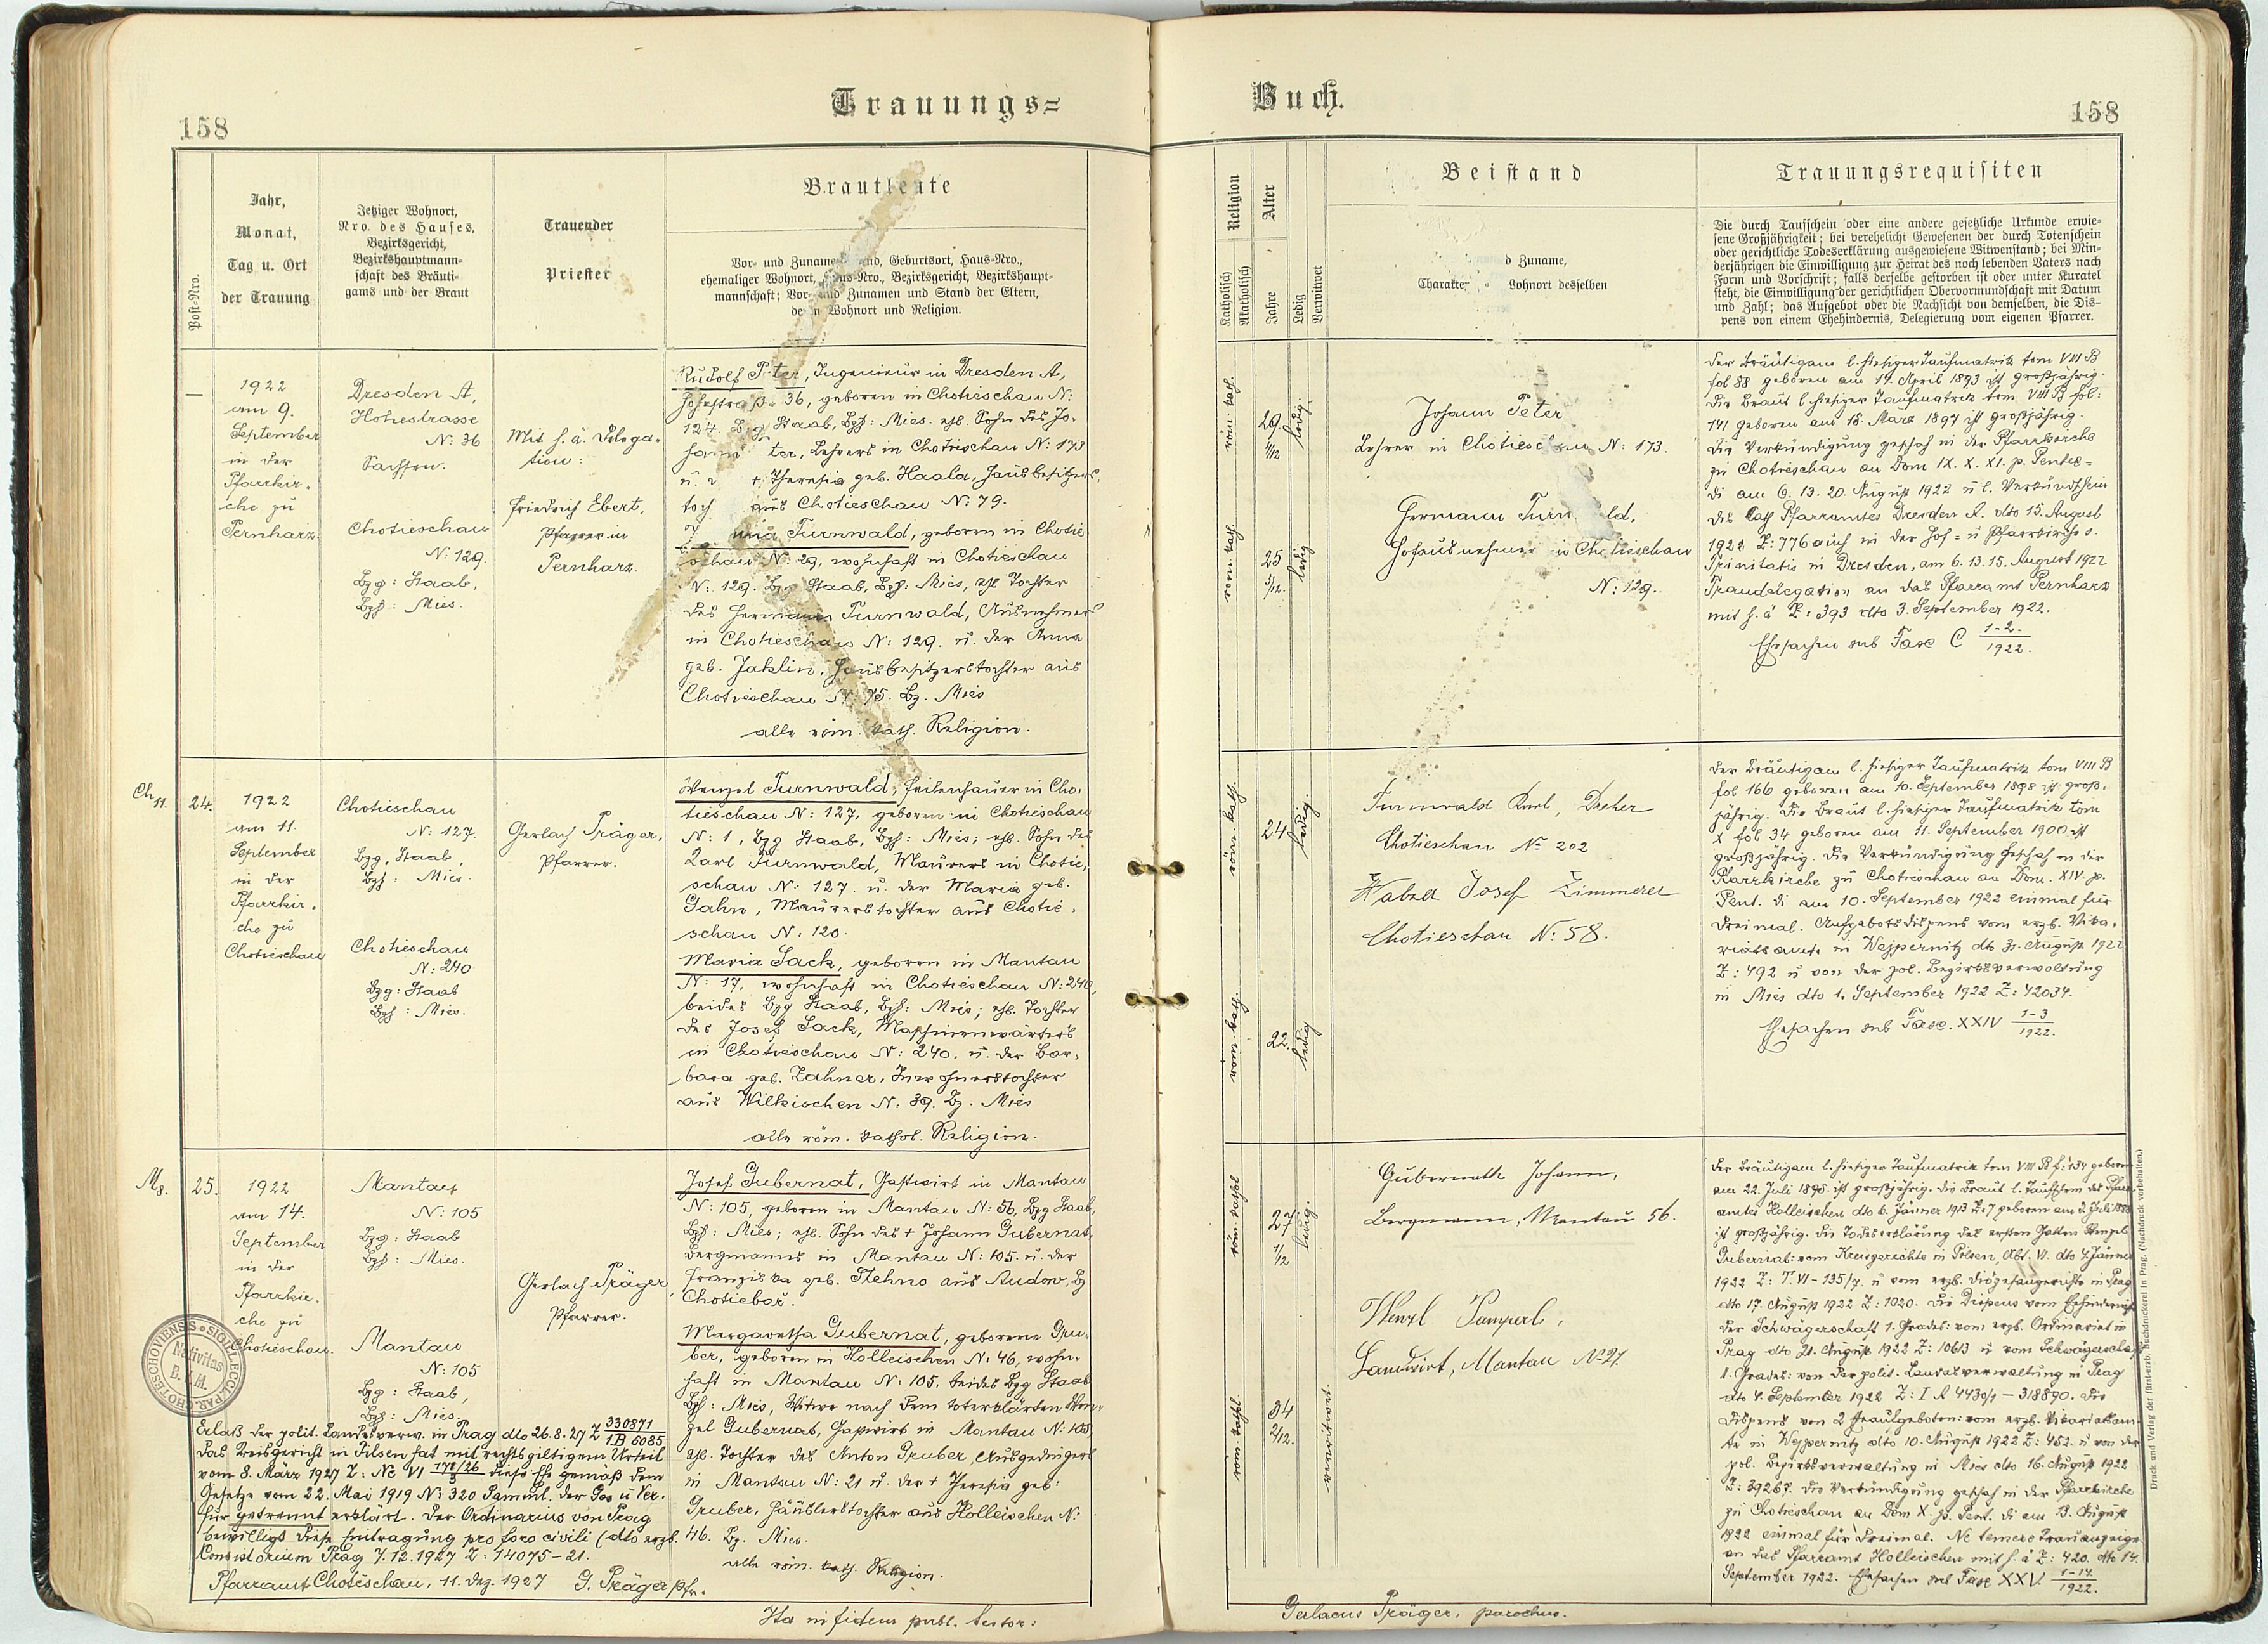 158
Trauungs=
Post=Nro.
Jahr,
Monat,
Tag u. Ort
der Trauung
Jetziger Wohnort,
Nro. des Hauses,
Bezirksgericht,
Bezirkshauptmann=
schaft des Bräuti=
gams und der Braut
Trauender
Priester
Brautleute
Vor= und Zuname
nd, Geburtsort, Haus=Nro.,
ehemaliger Wohnort, Haus=Nro., Bezirksgericht, Bezirkshaupt=
mannschaft; Vor= und Zunamen und Stand der Eltern,
Wohnort und Religion.
—
1922
am 9.
September
in der
Pfarrkir=
che zu
Pernharz.
Dresden A,
Hohestrasse
N: 36
Sachsen.
Chotieschau
N: 129.
Bzg: Staab,
Bzh: Mies.
Mit h. ä. Delega=
tion:
Friedrich Ebert,
Pfarrer in
Pernharz.
Rudolf P ter, Ingenieur in Dresden A,
36, geboren in Chotieschau N:
124. Bzg Staab, Bzh: Mies. ehl. Sohn des Jo=
hann ter, Lehrers in Chotieschau N: 173
u. d + Theresia geb. Haala, Hausbesitzers=
toch aus Chotieschau N: 79.
Turnwald, geboren in Chotie
schau N: 29, wohnhaft in Chotieschau
N: 129. Bzg Staab, Bzh: Mies, ehl Tochter
des Hermann Turnwald, Ausnehmers
in Chotieschau N: 129. u. der Anna
geb. Jaklin, Hausbesitzerstochter aus
Chotieschau N: 75. Bz. Mies
alle röm. kath. Religion.
Ch 11.
24.
1922
am 11.
September
in der
Pfarrkir=
che zu
Chotieschau
Chotieschau
N: 127.
Bzg. Staab,
Bzh: Mies.
Chotieschau
N: 240
Bzg: Staab
Bzh: Mies.
Gerlach Präger,
Pfarrer.
Wenzel Turnwald, Feilenhauer in Cho=
tieschau N: 127, geboren in Chotieschau
N: 1, Bzg Staab, Bzh: Mies; ehl. Sohn des
Karl Turnwald, Maurers in Chotie,
schau N: 127. u. der Maria geb.
Gahn, Maurerstochter aus Chotie=
schau N. 120.
Maria Sack, geboren in Mantau
N: 17, wohnhaft in Chotieschau N: 240,
beides Bzg Staab, Bzh: Mies; ehl. Tochter
des Josef Sack, Maschinenwärters
in Chotieschau N: 240. u. der Bar=
bara geb. Zahner, Inwohnerstochter
aus Wilkischen N: 39. Bz. Mies
alle röm. kathol. Religion.
M 8.
25.
1922
am 14.
September
in der
Pfarrkir=
che zu
Chotieschau.
Mantau
N: 105
Bzg: Staab
Bzh: Mies.
Mantau
N: 105
Bzg: Staab,
Bzh: Mies.
Gerlach Präger,
Pfarrer.
Josef Gubernat, Gastwirt in Mantau
N: 105, geboren in Mantau N: 56, Bzg Staab,
Bzh: Mies; ehl. Sohn des + Johann Gubernat
Bergmanns in Mantau N: 105 u. der
Franziska geb. Stehno aus Audow, Bz
Chotieboř.
Margaretha Gubernat, geborene Gru=
ber, geboren in Holleischen N: 46, wohn=
haft in Mantau N: 105. beides Bzg Staab
Bzh: Mies, Witwe nach dem toterklärten Wen=
zel Gubernat, Gastwirt in Mantau N: 105,
ehl. Tochter des Anton Gruber, Ausgedingers
in Mantau N: 21 u. der + Theresia geb:
Gruber, Häuslerstochter aus Holleischen N:
46. Bz. Mies.
alle röm. kath. Religion.
SIGILL. ECCL. PAR. CHOTESCHOVIENSIS
Nativitas
B.V.M.
Erlaß der polit. Landesverw. in Prag dto 26.8.27 Z 330871
1B 6085
Das Kreisgericht in Pilsen hat mit rechtsgiltigem Urteil
vom 8. März 1927 Z: Nc VI 178/26
3 diese Ehe gemäß dem
Gesetze vom 22. Mai 1919 N: 320 Samml. der Ges u Ver.
für getrennt erklärt. Der Ordinarius von Prag
bewilligt diese Eintragung pro foro civili (dto erzb.
Konsistorium Prag 7.12.1927 Z: 14075–21.
Pfarramt Chotěschau, 11. Dez. 1927 G. Präger Pfr.
Ita in fidem publ. testor:
Buch.
158
Religion
Katholisch
Akatholisch
Alter
Jahre
Ledig
Verwitwet
Beistand
d Zuname,
Charakter
Wohnort desselben
Trauungsrequisiten
Die durch Taufschein oder eine andere gesetzliche Urkunde erwie=
sene Großjährigkeit; bei verehelicht Gewesenen der durch Totenschein
oder gerichtliche Todeserklärung ausgewiesene Witwenstand; bei Min=
derjährigen die Einwilligung zur Heirat des noch lebenden Vaters nach
Form und Vorschrift; falls derselbe gestorben ist oder unter Kuratel
steht, die Einwilligung der gerichtlichen Obervormundschaft mit Datum
und Zahl; das Aufgebot oder die Nachsicht von demselben, die Dis=
pens von einem Ehehindernis, Delegierung vom eigenen Pfarrer.
röm. kath.
29
4/12
ledig.
röm. kath.
25
5/12.
ledig
Johann Peter
Lehrer in Chotieschau N: 173.
Hermann Turn ld,
Hofausnehmer in Chotieschau
N: 129.
Der Bräutigam l. hiesiger Taufmatrik tom VIII B
fol 88 geboren am 19. April 1893 ist großjährig.
Die Braut l. hiesiger Taufmatrik tom. VIII B fol:
141 geboren am 18. März 1897 ist großjährig.
Die Verkündigung geschah in der Pfarrkirche
zu Chotieschau an Dom IX. X. XI. p. Pentec=
di am 6. 13. 20. August 1922 u l. Verkündschein
des kath Pfarramtes Dresden A. dto 15. August
1922 Z: 776 auch in der Hof= u Pfarrkirche s.
Trinitatis in Dresden, am 6. 13. 15. August 1922
Traudelegation an das Pfarramt Pernharz
mit h. ä Z: 393 dto 3. September 1922.
Ehesachen sub Fasc C 1–2.
1922.
röm. kath.
24
ledig.
röm. kath.
22.
ledig
Turnwald Karl, Dreher
Chotieschau No 202
Habel Josef Zimmerer
Chotieschau N: 58.
Der Bräutigam l. hiesiger Taufmatrik tom VIII B
fol 166 geboren am 10. September 1898 ist groß=
jährig. Die Braut l. hiesiger Taufmatrik tom
X fol 34 geboren am 11. September 1900 ist
großjährig. Die Verkündigung geschah in der
Pfarrkirche zu Chotieschau an Dom. XIV. p.
Pent. di am 10. September 1922 einmal für
dreimal. Aufgebotsdispens vom erzb. Vika=
riatsamte in Wejpernitz dto 31. August 1922
Z: 492 u von der pol. Bezirksverwaltung
in Mies dto 1. September 1922 Z: 42034.
Ehesachen sub Fasc. XXIV 1–3
1922.
röm. kathol
27
1/12
ledig.
röm. kathol
34
2/12.
verwitwet
Gubernath Johann,
Bergmann, Mantau 56.
Wenzl Pamperl,
Landwirt, Mantau No 21.
Der Bräutigam l. hiesiger Taufmatrik tom VIII B f: 134 geboren
am 22. Juli 1895 ist großjährig. Die Braut l. Taufschein des Pfarr=
amtes Holleischen dto 6. Jänner 1913 Z: 7 geboren am 2. Juli 1888
ist großjährig. Die Todeserklärung des ersten Gatten Wenzel
Gubernat: vom Kreisgerichte in Pilsen, Abt. VI. dto 4 Jänner
1922 Z: T. VI – 135/7. u vom erzb. Diözesangerichte in Prag
dto 17. August 1922 Z: 1020. Die Dispens vom Ehehindernis
der Schwägerschaft 1. Grades: vom erzb. Ordinariat in
Prag dto 21. August 1922 Z: 10613 u vom Schwägerschaft
1. Grades: von der polit. Landesverwaltung in Prag
dto 4. September 1922 Z: I A 4430/1 – 318890. Die
Dispens von 2 Aufgeboten: vom erzb. Vikariatsam=
te in Wejpernitz dto 10. August 1922 Z: 452. u von der
pol. Bezirksverwaltung in Mies dto 16. August 1922
Z: 39267. Die Verkündigung geschah in der Pfarrkirche
zu Chotieschau an Dom X. p. Pent. di am 13. August
1922 einmal für dreimal. Ne temere Trauanzeige
an das Pfarramt Holleischen mit h. ä Z: 420. dto 14.
September 1922. Ehesachen sub Fasc XXV. 1–14.
1922.
Druck und Verlag der fürsterzb. Buchdruckerei in Prag. (Nachdruck vorbehalten.)
Gerlacus Präger, parochus.